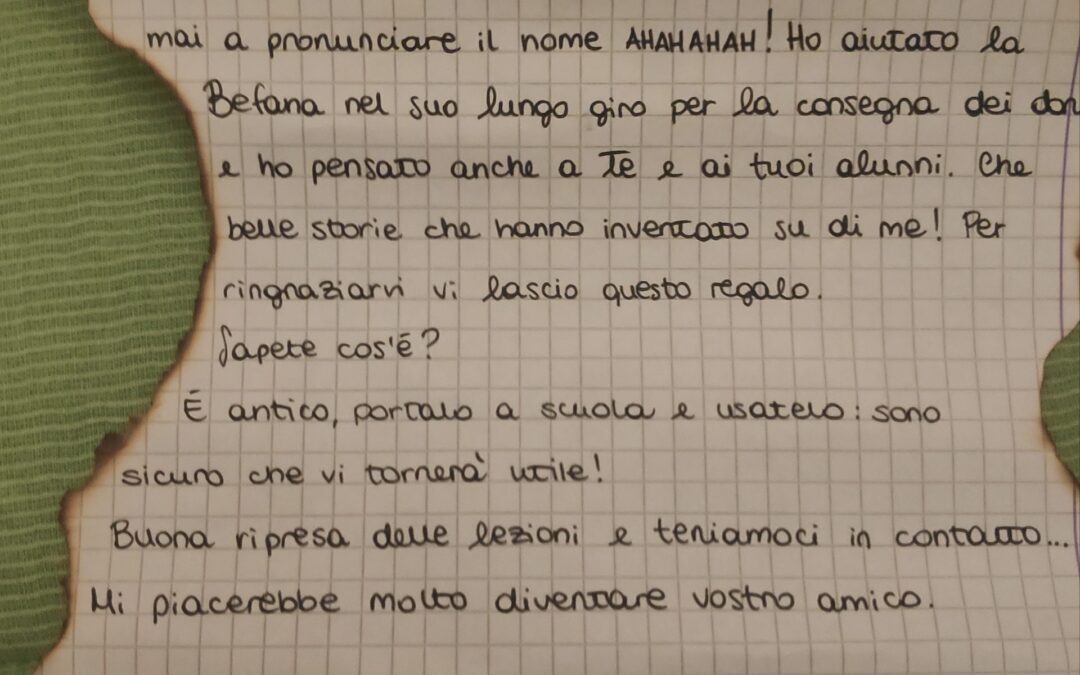 mai a pronunciare il nome AHAHAHAH! Ho aiutato la
Befana nel suo lungo giro per la consegna dei don
e ho pensato anche a Te e ai tuoi alunni. Che
belle storie che hanno inventato su di me! Per
ringnaziarvi vi lascio questo regalo.
Sapete cos'é?
É antico, portalo a scuola e usatelo: sono
sicuro che vi tornerà utile!
Buona ripresa delle lezioni e teniamoci in contatto...
Mi piacerebbe molto diventare vostro amico.